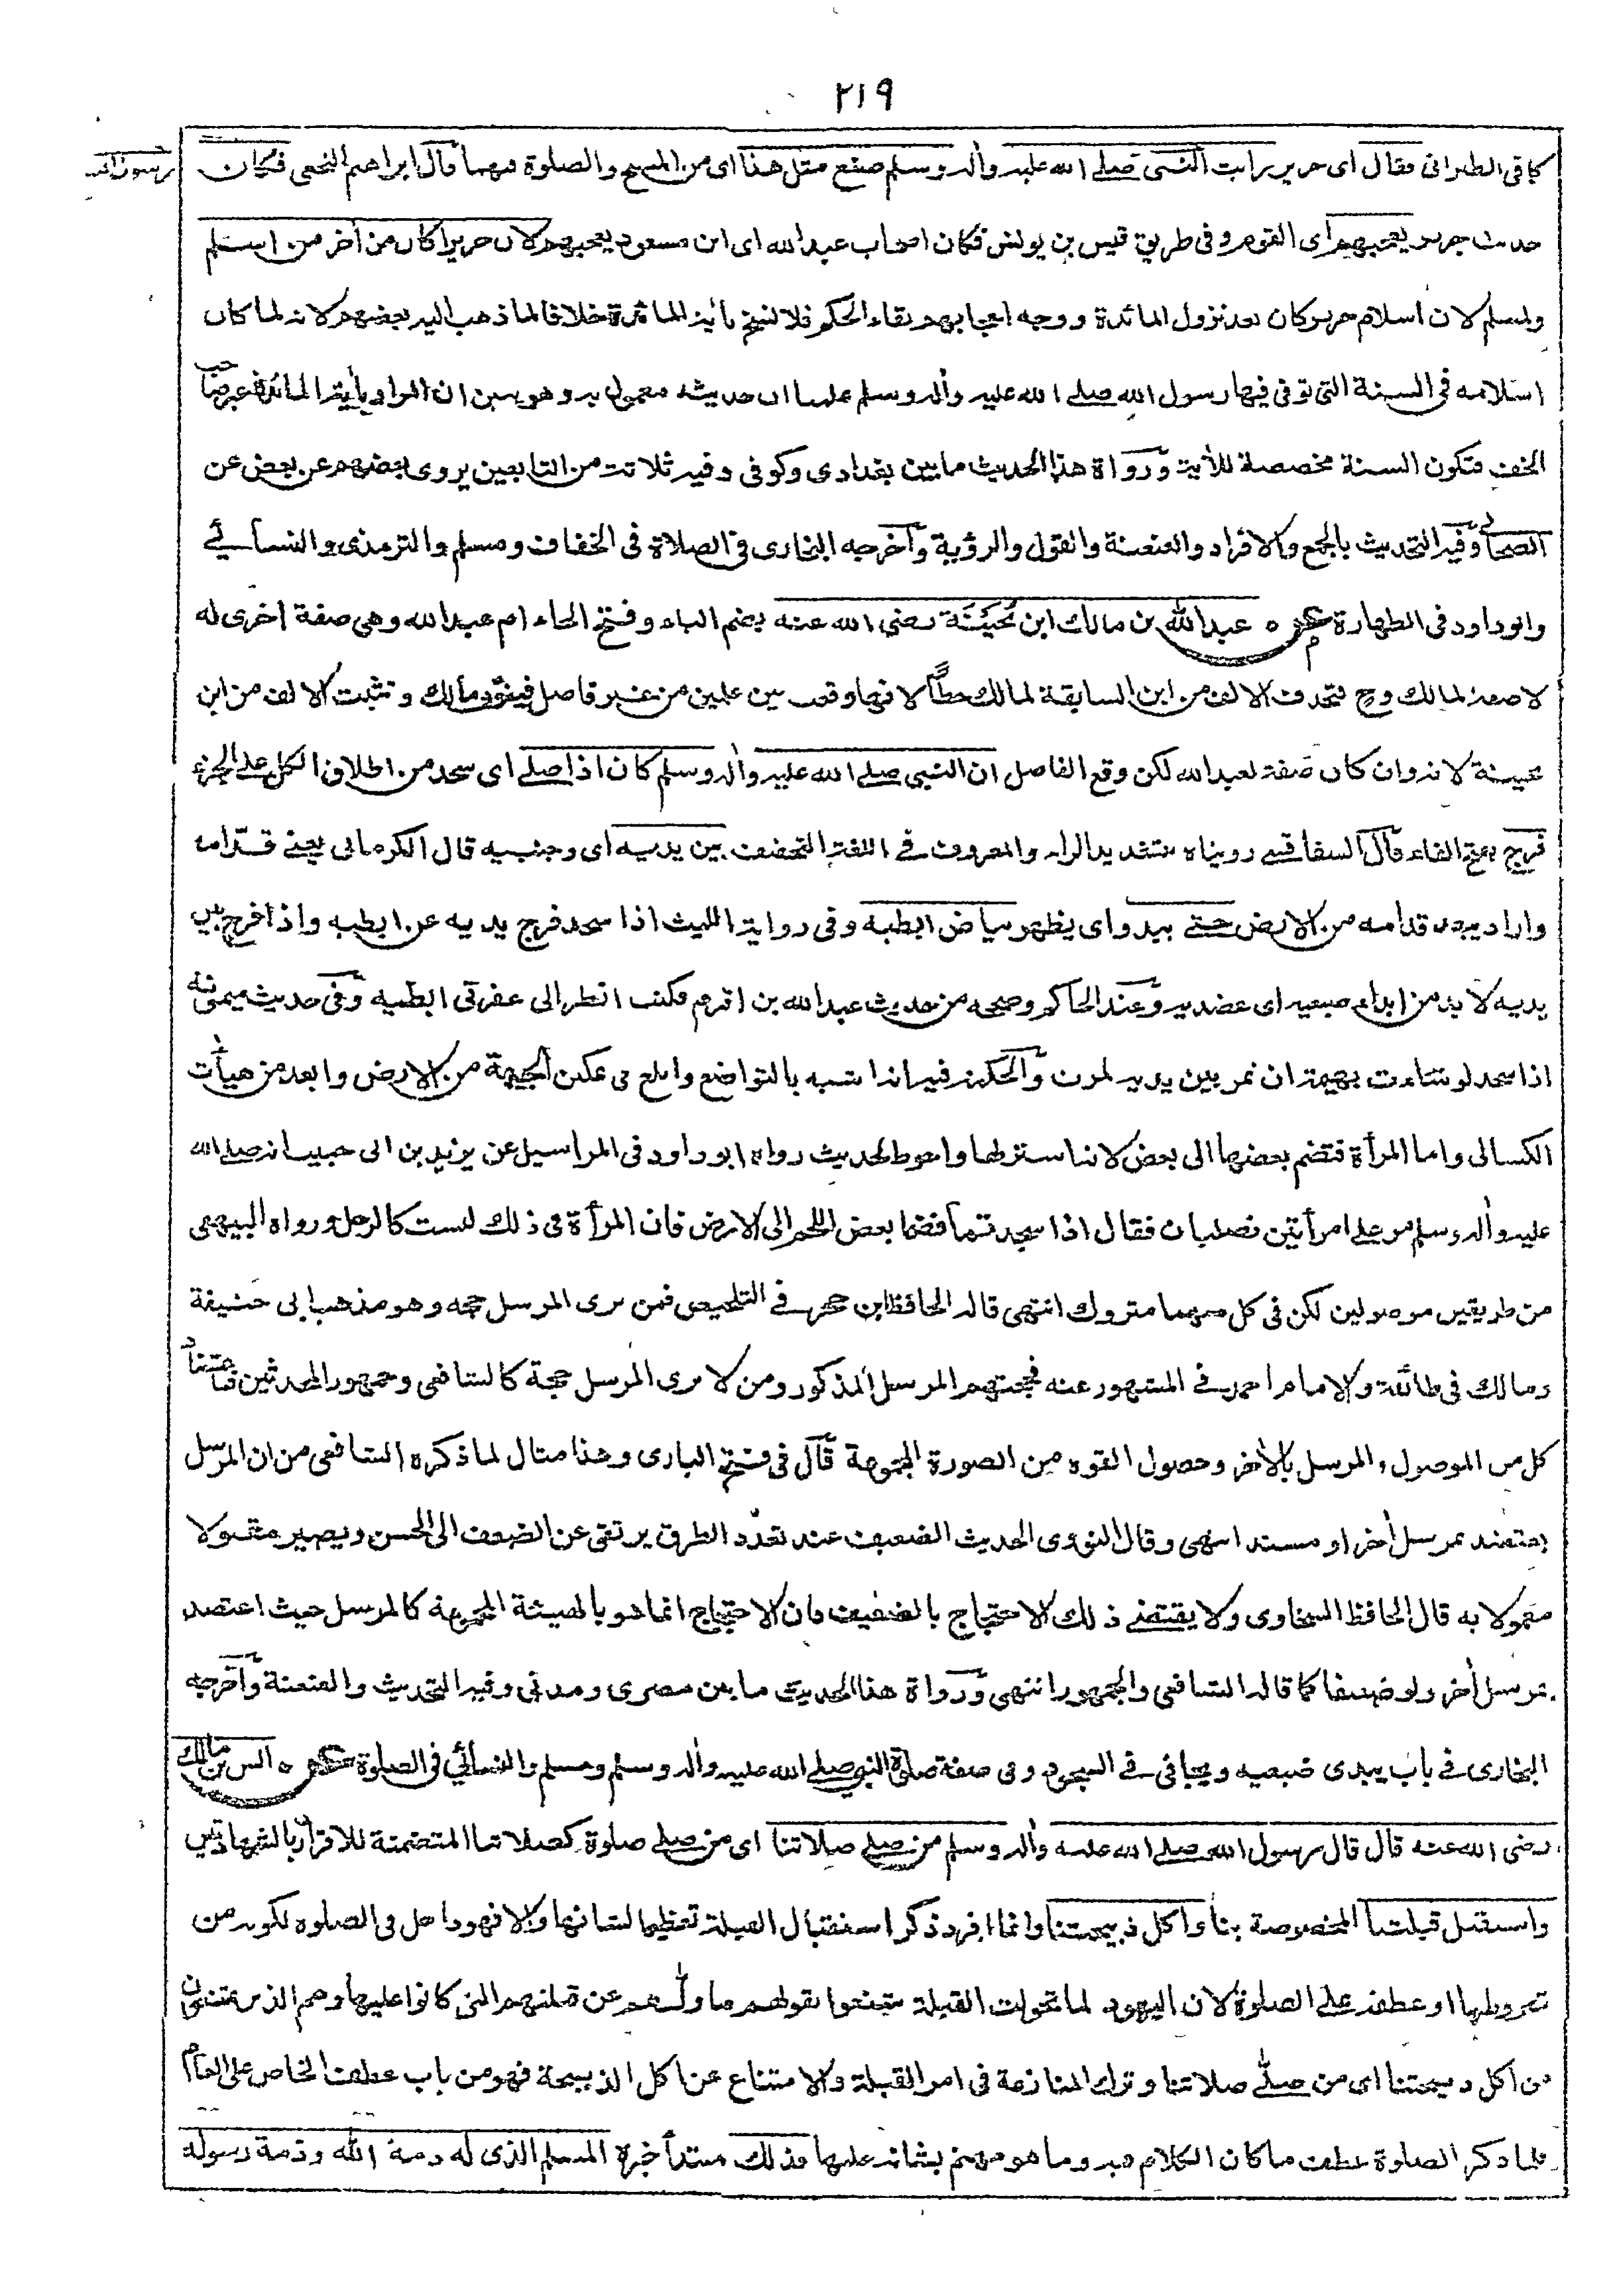 ٢١٩
كما في الطبراني فقال اى جرير رايت النبى صلى الله عليه واله وسلم صنع مثل هذا اى من المسح والصلوة فيهما قال ابراهيم النخعى فكان
رسول الله
حديث جرير يعجبهم اى القوم وفى طريق قيس بن يونس فكان اصحاب عبد الله اى ابن مسعود يعجبهم لان جريرا كان من آخر من اسلم
ولمسلم لان اسلام جرير كان بعد نزول المائدة ووجه اعجابهم بقاء الحكم فلا نسخ بآية المائدة خلافا لما ذهب اليه بعضهم لانه لما كان
اسلامه فى السنة التى توفى فيها رسول الله صلى الله عليه واله وسلم علمنا ان حديثه معمول به وهو يبين ان المراد بآية المائدة غير صاحب
الخف فتكون السنة مخصصة للآية ورواة هذا الحديث ما بين بغدادى وكوفى وفيه ثلاثة من التابعين يروى بعضهم عن بعض عن
الصحابى وفيه التحديث بالجمع والافراد والعنعنة والقول والرؤية وأخرجه البخارى فى الصلاة فى الخفاف ومسلم والترمذى والنسائي
وابو داود فى الطهارة عن عبد الله بن مالك ابن بُحَيْنَة رضى الله عنه بضم الباء وفتح الحاء ام عبد الله وهى صفة اخرى له
لا صفة لمالك وح تحذف الالف من ابن السابقة لمالك خطاً لانها وقعت بين علمين من غير فاصل فينوّن مالك وتثبت الالف من ابن
بحينة لانه وان كان صفة لعبد الله لكن وقع الفاصل ان النبي صلى الله عليه واله وسلم كان اذا صلى اى سجد من اطلاق الكل على الجزء
فرج بفتح الفاء قال السفاقسى رويناه بتشديد الراء والمعروف في اللغة التخفيف بين يديه اى وجنبيه قال الكرمانى يعني قدّامه
واراد يبعد قدامه من الارض حتى يبدو اى يظهر بياض ابطيه وفى رواية الليث اذا سجد فرج يديه عن ابطيه واذا فرج بين
يديه لا بد من ابداء ضبعيه اى عضديه وعند الحاكم وصححه من حديث عبد الله بن اقرم فكنت انظر الى عفرتى ابطيه وفى حديث ميمونة
اذا سجد لو شاءت بهيمة ان تمر بين يديه لمرت والحكمة فيه انه اشبه بالتواضع وابلغ فى تمكين الجبهة من الارض وابعد من هيآت
الكسالى واما المرأة فتضم بعضها الى بعض لانه استر لها واحوط لحديث رواه ابو داود فى المراسيل عن يزيد بن ابى حبيب انه صلى الله
عليه واله وسلم مر على امرأتين تصليان فقال اذا سجدتما فضما بعض اللحم الى الارض فان المرأة فى ذلك ليست كالرجل ورواه البيهقى
من طريقين موصولين لكن فى كل منهما متروك انتهى قاله الحافظ ابن حجر في التلخيص فمن يرى المرسل حجة وهو مذهب ابى حنيفة
ومالك فى طائفة والامام احمد في المشهور عنه فحجتهم المرسل المذكور ومن لا يرى المرسل حجة كالشافعى وجمهور المحدثين فباعتضاد
كل من الموصول والمرسل بالآخر وحصول القوة من الصورة المجموعة قال فى فتح البارى وهذا مثال لما ذكره الشافعى من ان المرسل
يعتضد بمرسل آخر او مسند انتهى وقال النووى الحديث الضعيف عند تعدّد الطرق يرتقى عن الضعف الى الحسن ويصير مقبولا
معمولا به قال الحافظ السخاوى ولا يقتضى ذلك الاحتجاج بالضعيف فان الاحتجاج انما هو بالهيئة المجموعة كالمرسل حيث اعتضد
بمرسل آخر ولو ضعيفا كما قاله الشافعى والجمهور انتهى ورواة هذا الحديث ما بين مصرى ومدنى وفيه التحديث والعنعنة وأخرجه
البخارى في باب يبدى ضبعيه ويجافى في السجود وفى صفة صلوة النبي صلى الله عليه واله وسلم ومسلم والنسائي فى الصلوة عن انس بن مالك
رضى الله عنه قال قال رسول الله صلى الله عليه واله وسلم من صلى صلاتنا اى من صلى صلوة كصلاتنا المتضمنة للاقرار بالشهادتين
واستقبل قبلتنا المخصوصة بنا واكل ذبيحتنا وانما افرد ذكر استقبال القبلة تعظيما لشانها والا فهو داخل فى الصلوة لكونه من
شروطها او عطفه على الصلوة لان اليهود لما تحولت القبلة شنعوا بقولهم ما ولّٰهم عن قبلتهم التى كانوا عليها وهم الذين يمتنعون
من اكل ذبيحتنا اى من صلّى صلاتنا وترك المنازعة فى امر القبلة والامتناع عن اكل الذبيحة فهو من باب عطف الخاص على العام
فلما ذكر الصلوة عطف ما كان الكلام فيه وما هو مهتم بشانه عليها فذلك مبتدأ خبره المسلم الذى له ذمة الله وذمة رسوله